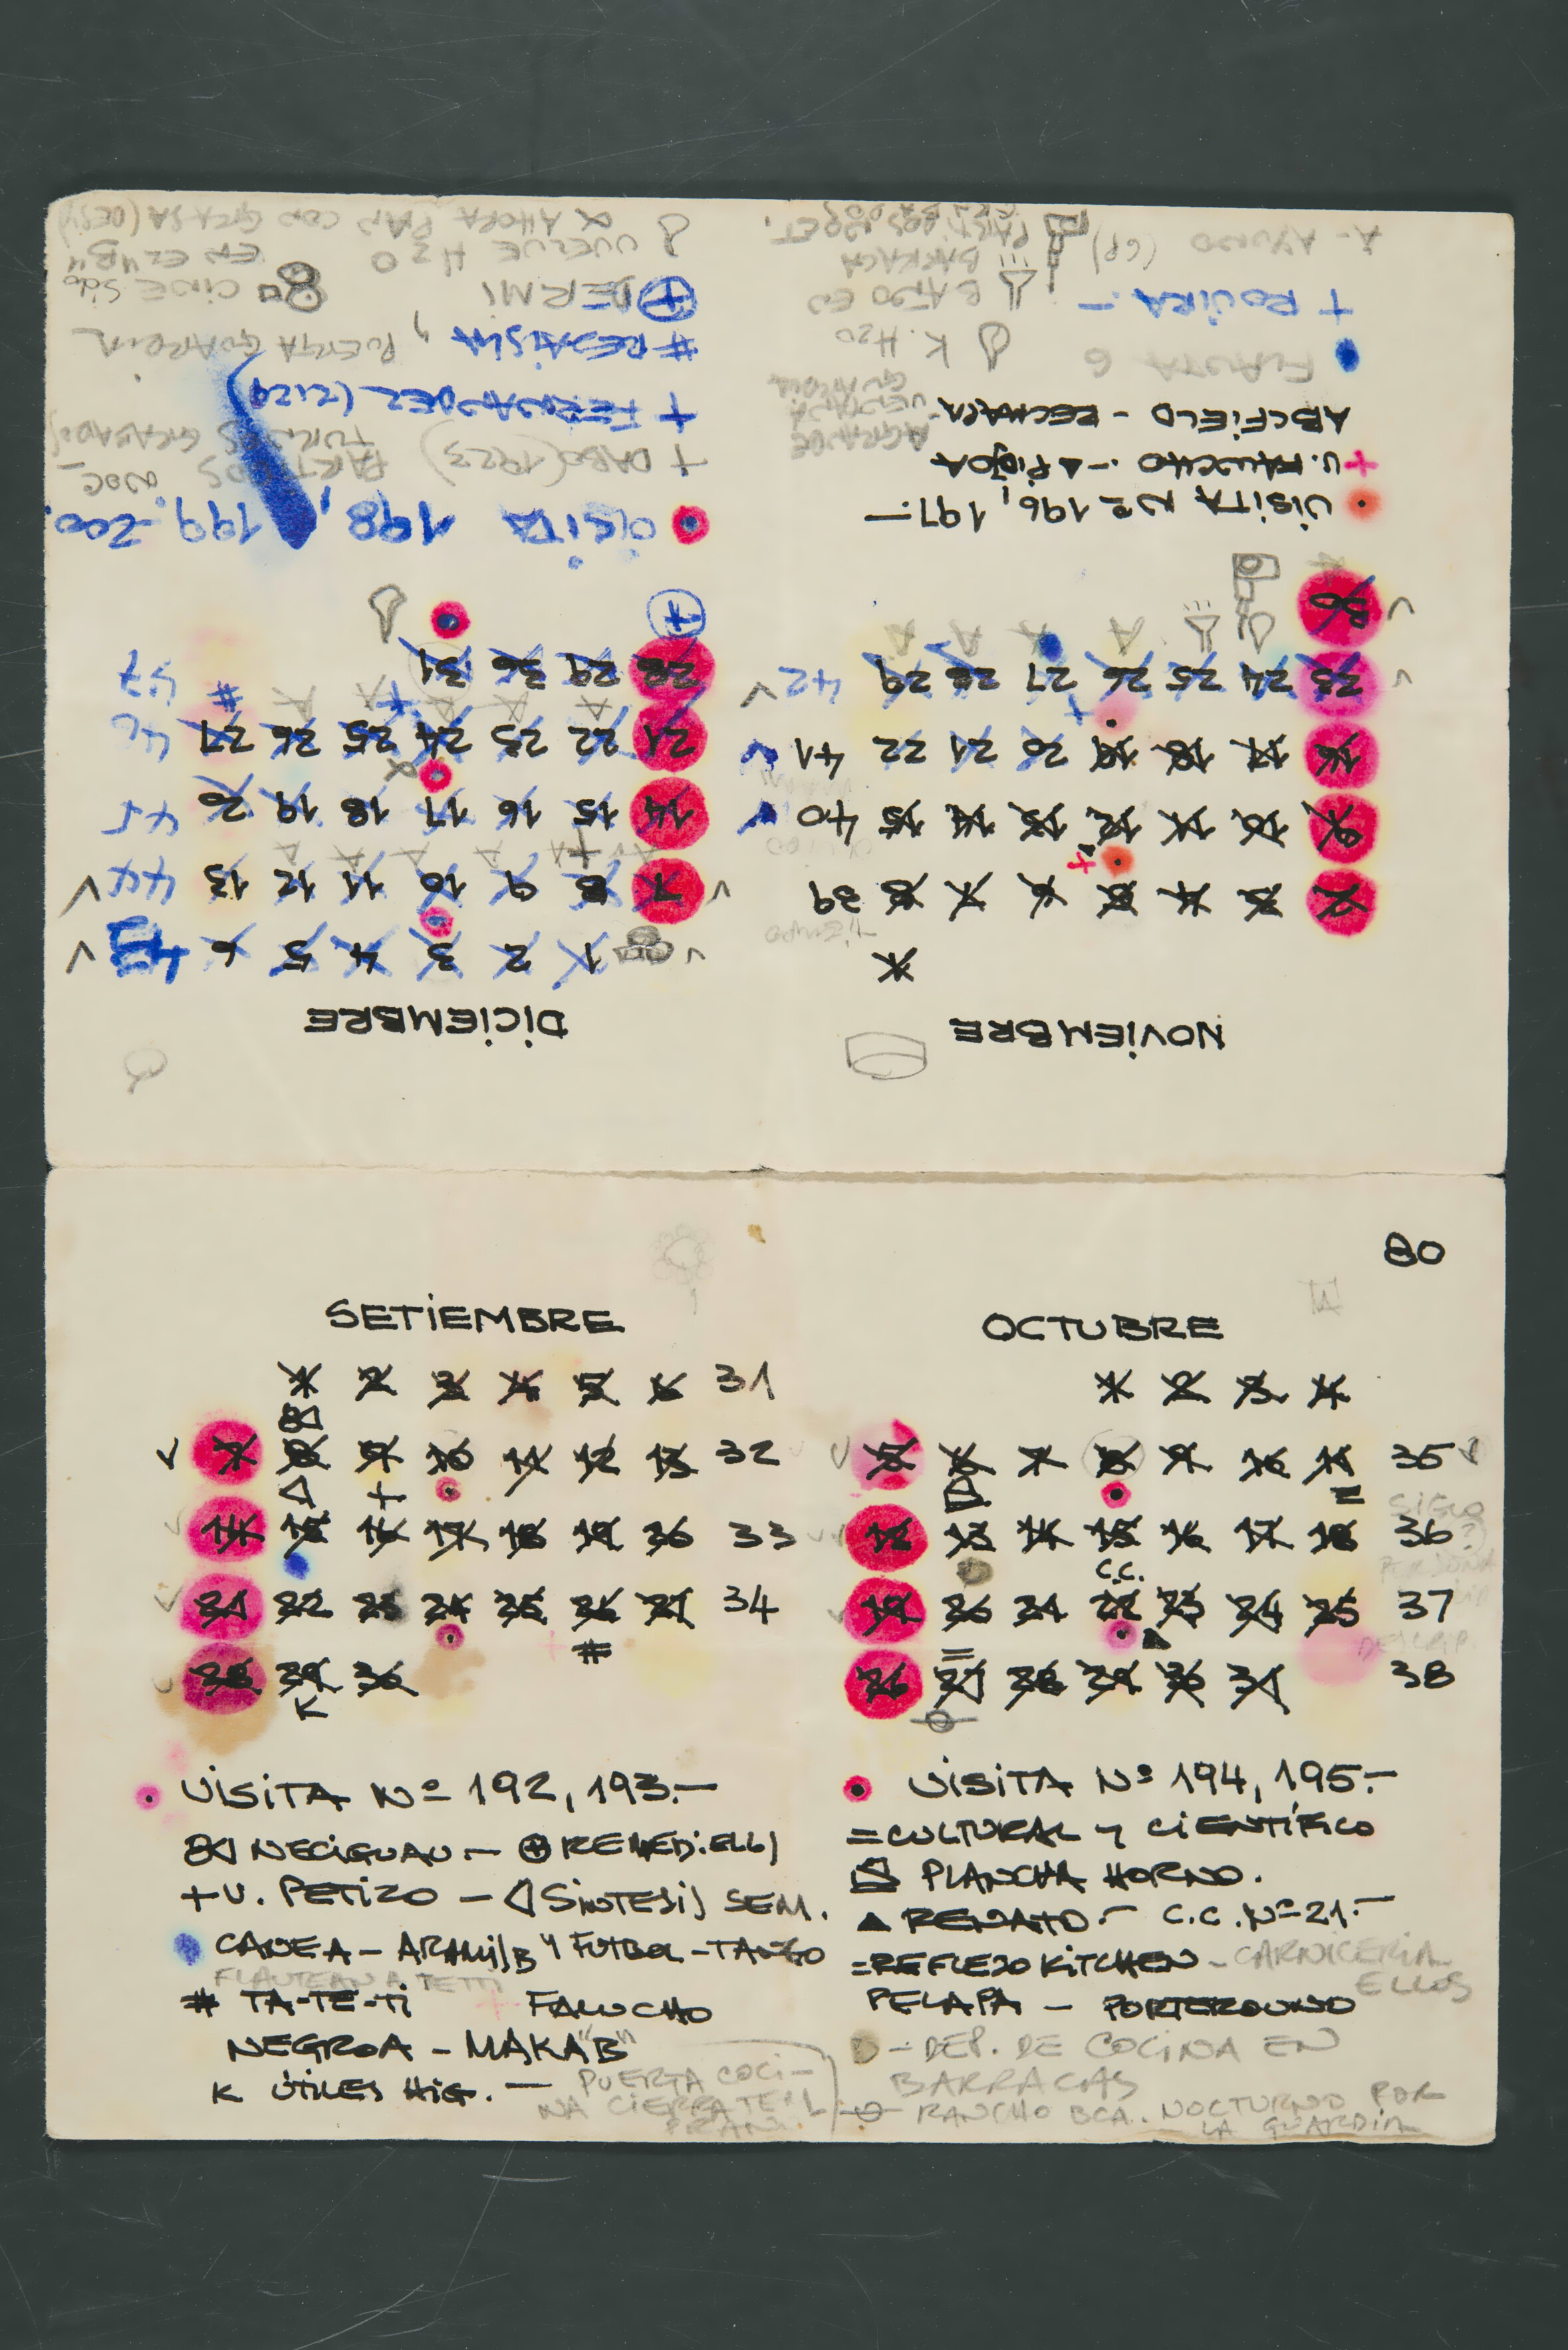 80
SETIEMBRE
1 2 3 4 5 6 31
v 7 8 9 10 11 12 13 32
v 14 15 16 17 18 19 20 33
v 21 22 23 24 25 26 27 34
#
28 29 30
K
VISITA Nº 192, 193.—
NECIGUAU — REMEDIELLI
+ V. PETIZO — SINTESIS SEM.
CANEA — ARAMIS B Y FUTBOL — TANGO
FLAUTEAN A TETTI
# TA-TE-TI + FALUCHO
NEGROA — MAKA "B"
K ÚTILES HIG. — PUERTA COCI-
NA CIERRATE
OCTUBRE
1 2 3 4
v 5 6 7 8 9 10 11 35 v
=
v 12 13 14 15 16 17 18 36
C.C.
v 19 20 21 22 23 24 25 37
=
26 27 28 29 30 31 38
VISITA Nº 194, 195.—
= CULTURAL Y CIENTÍFICO
PLANCHA HORNO.
RENATO.— C.C. Nº 21.—
= REFLEJO KITCHEN — CARNICERIA
ELLOS
PELAPA — PORTEROUNO
— DEP. DE COCINA EN
BARRACAS
RANCHO BCA. NOCTURNO POR
LA GUARDIA
NOVIEMBRE
1
2 3 4 5 6 7 8 39
+
9 10 11 12 13 14 15 40
16 17 18 19 20 21 22 41
+
v 23 24 25 26 27 28 29 42 v
A A A A
v 30
VISITA Nº 196, 197.—
+ V. FALUCHO.— PIOJOA
ABCFIELD — PECHAPA
AGRANDE
VENTANA
GUARDIA
FLAUTA 6
K. H2O
+ ROVIRA.—
BAÑO EN
BARRACA
A — AYUNO (GP)
DICIEMBRE
v 1 2 3 4 5 6 43 v
v 7 8 9 10 11 12 13 44 v
14 15 16 17 18 19 20 45
α
21 22 23 24 25 26 27 46
A A A A A #
28 29 30 31 47
+
VISITA 198, 199, 200.
+ DABO (1923) PARTIDOS NOC—
TURNOS GRABADOS
+ FERNANDEZ (2129)
# REQUISA, PUERTA GUARDIA
+ DERMI CINE SÁB
EN EL 4B Y
VUELVE H2O
α AHORA PAN CON GRASA (DESY)